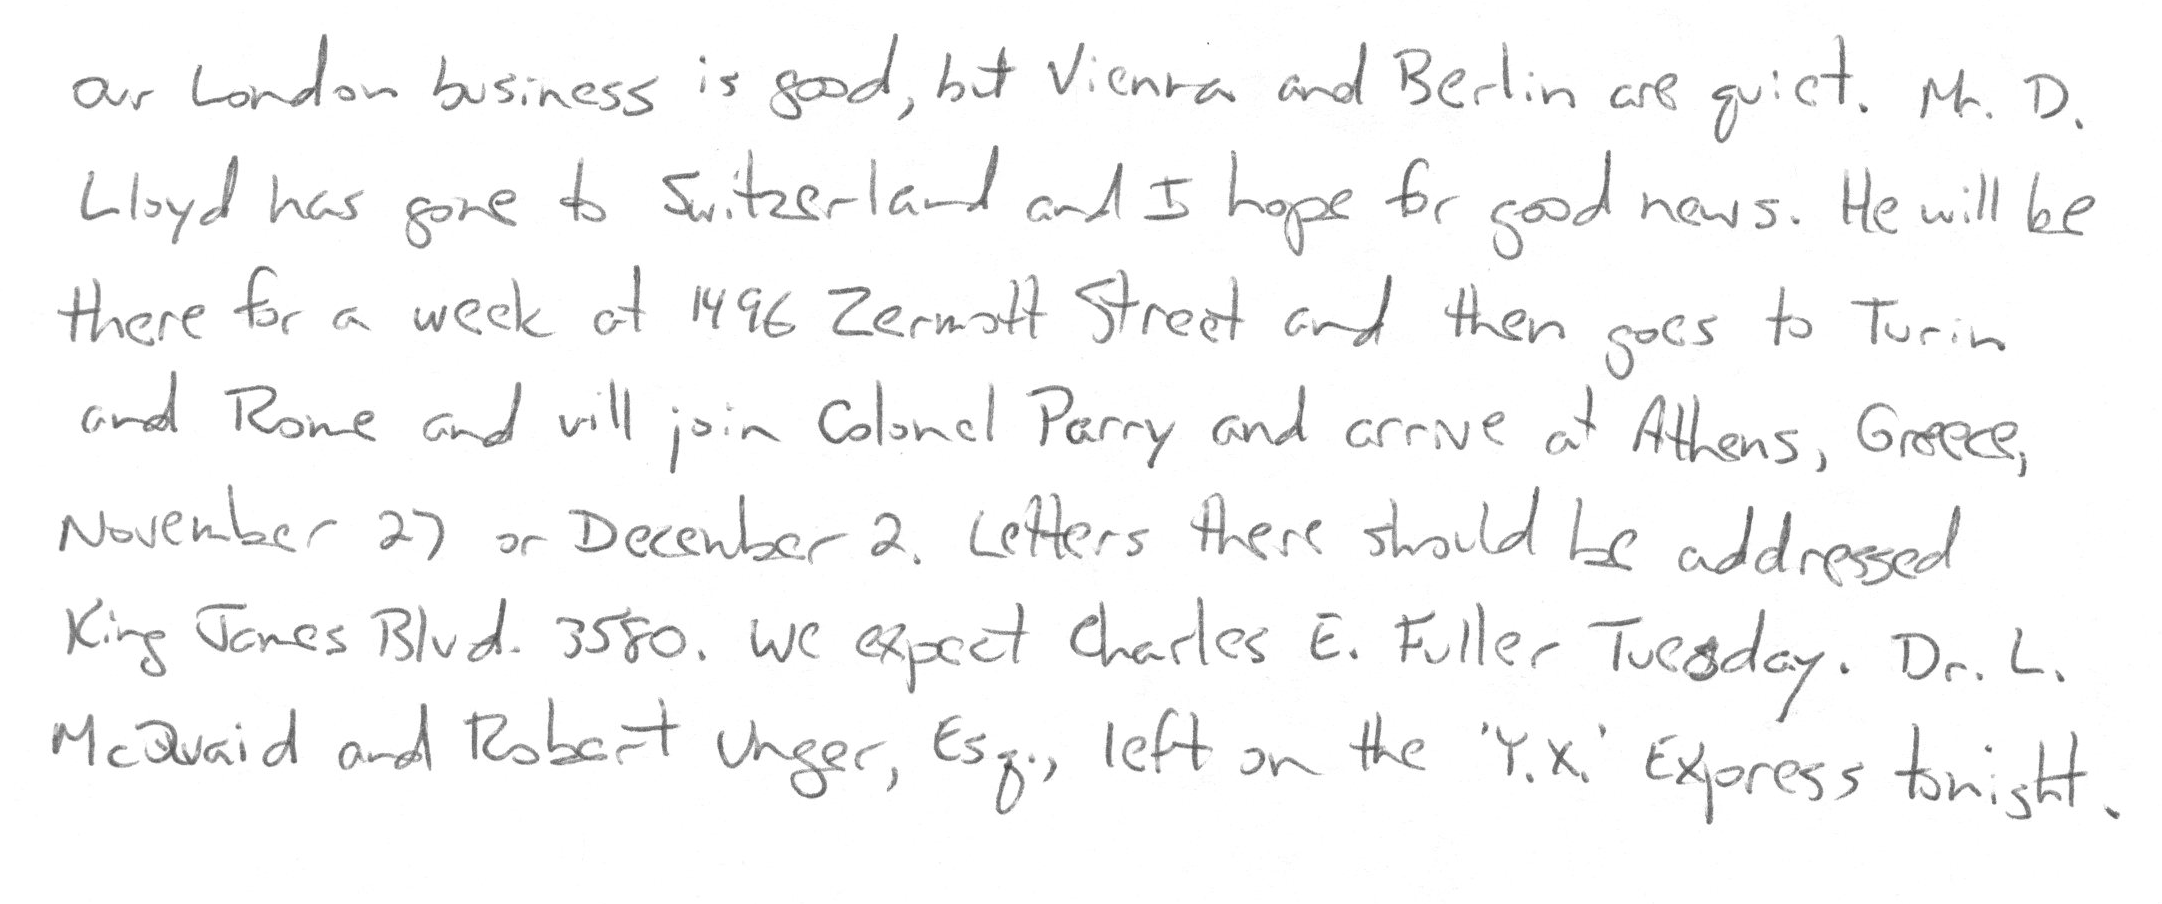 Our London business is good, but Vienna and Berlin are quiet. Mr. D.
Lloyd has gone to Switzerland and I hope for good news. He will be
there for a week at 1496 Zermott Street and then goes to Turin
and Rome and will join Colonel Parry and arrive at Athens, Greece,
November 27 or December 2. Letters there should be addressed
King James Blvd. 3580. We expect Charles E. Fuller Tuesday. Dr. L.
McQuaid and Robert Unger, Esq., left on the 'Y.X.' Express tonight.